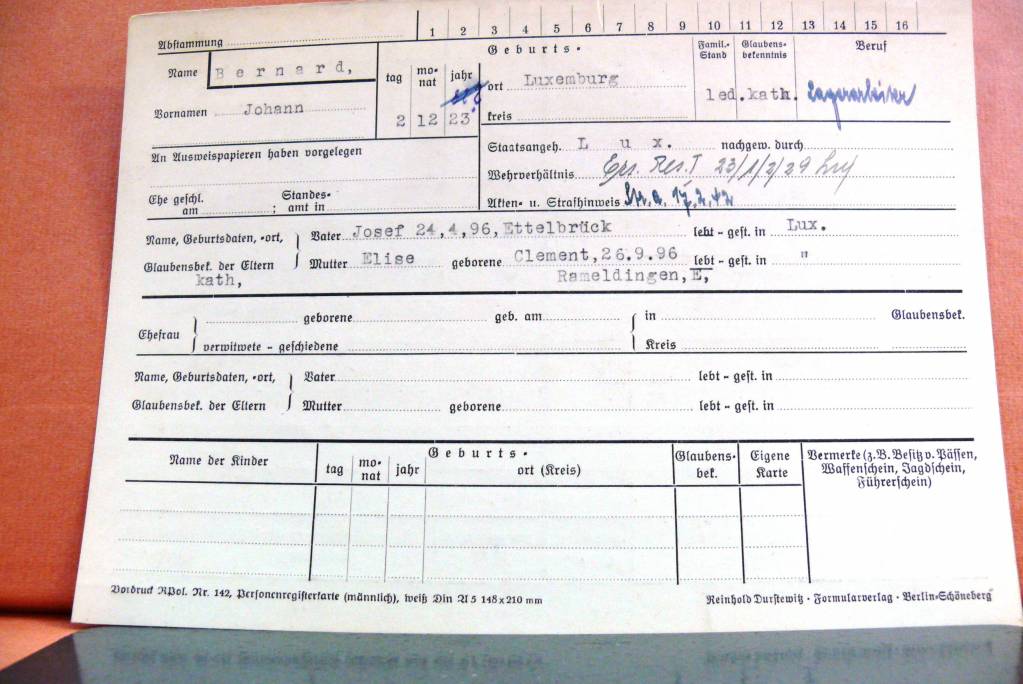 1 2 3 4 5 6 7 8 9 10 11 12 13 14 15 16
Abstammung
Name Bernard,
tag monat jahr
Geburts-
ort Luxemburg
Famil.-Stand
Glaubensbekenntnis
Beruf
led. kath. Lagerarbeiter
Vornamen Johann
2 12 23
kreis
An Ausweispapieren haben vorgelegen
Staatsangeh. Lux. nachgew. durch
Wehrverhältnis Ers. Res. I 23/1/2/29
Ehe geschl. am ; Standesamt in
Akten- u. Strafhinweis Str. a. 17.2.42
Name, Geburtsdaten, -ort, Vater Josef 24,4,96, Ettelbrück lebt - gest. in Lux.
Glaubensbek. der Eltern Mutter Elise geborene Clement, 26.9.96 lebt - gest. in "
kath, Rameldingen, E,
Ehefrau
geborene geb. am in Glaubensbek.
verwitwete - geschiedene Kreis
Name, Geburtsdaten, -ort, Vater lebt - gest. in
Glaubensbek. der Eltern Mutter geborene lebt - gest. in
Name der Kinder
Geburts-
tag monat jahr ort (Kreis)
Glaubensbek.
Eigene Karte
Vermerke (z.B. Besitz v. Pässen,
Waffenschein, Jagdschein,
Führerschein)
Vordruck RPol. Nr. 142, Personenregisterkarte (männlich), weiß Din A 5 148 x 210 mm
Reinhold Durstewitz · Formularverlag · Berlin-Schöneberg